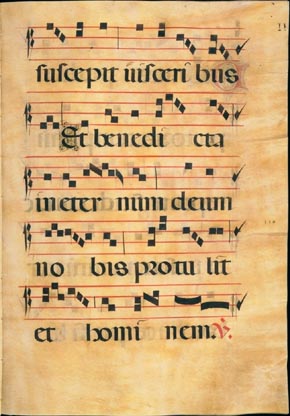 suscepit visceri bus
Et benedi cta
in eter num deum
no bis protu lit
et homi nem. V.